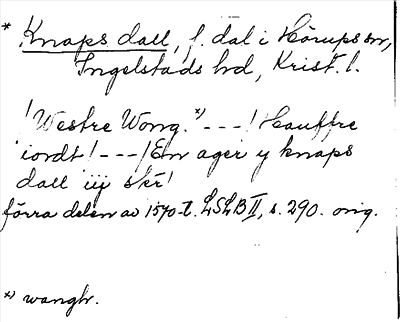 * Knaps dall, f. dal i Hörups sn,
Ingelstads hd, Krist. l.
! Westre Wong. *) --- ! Hauffre
iordt ! --- ! En ager y knaps
dall iij skr !
förra delen av 1570-t. LSLB II, s. 290. orig.
*) wanghr.